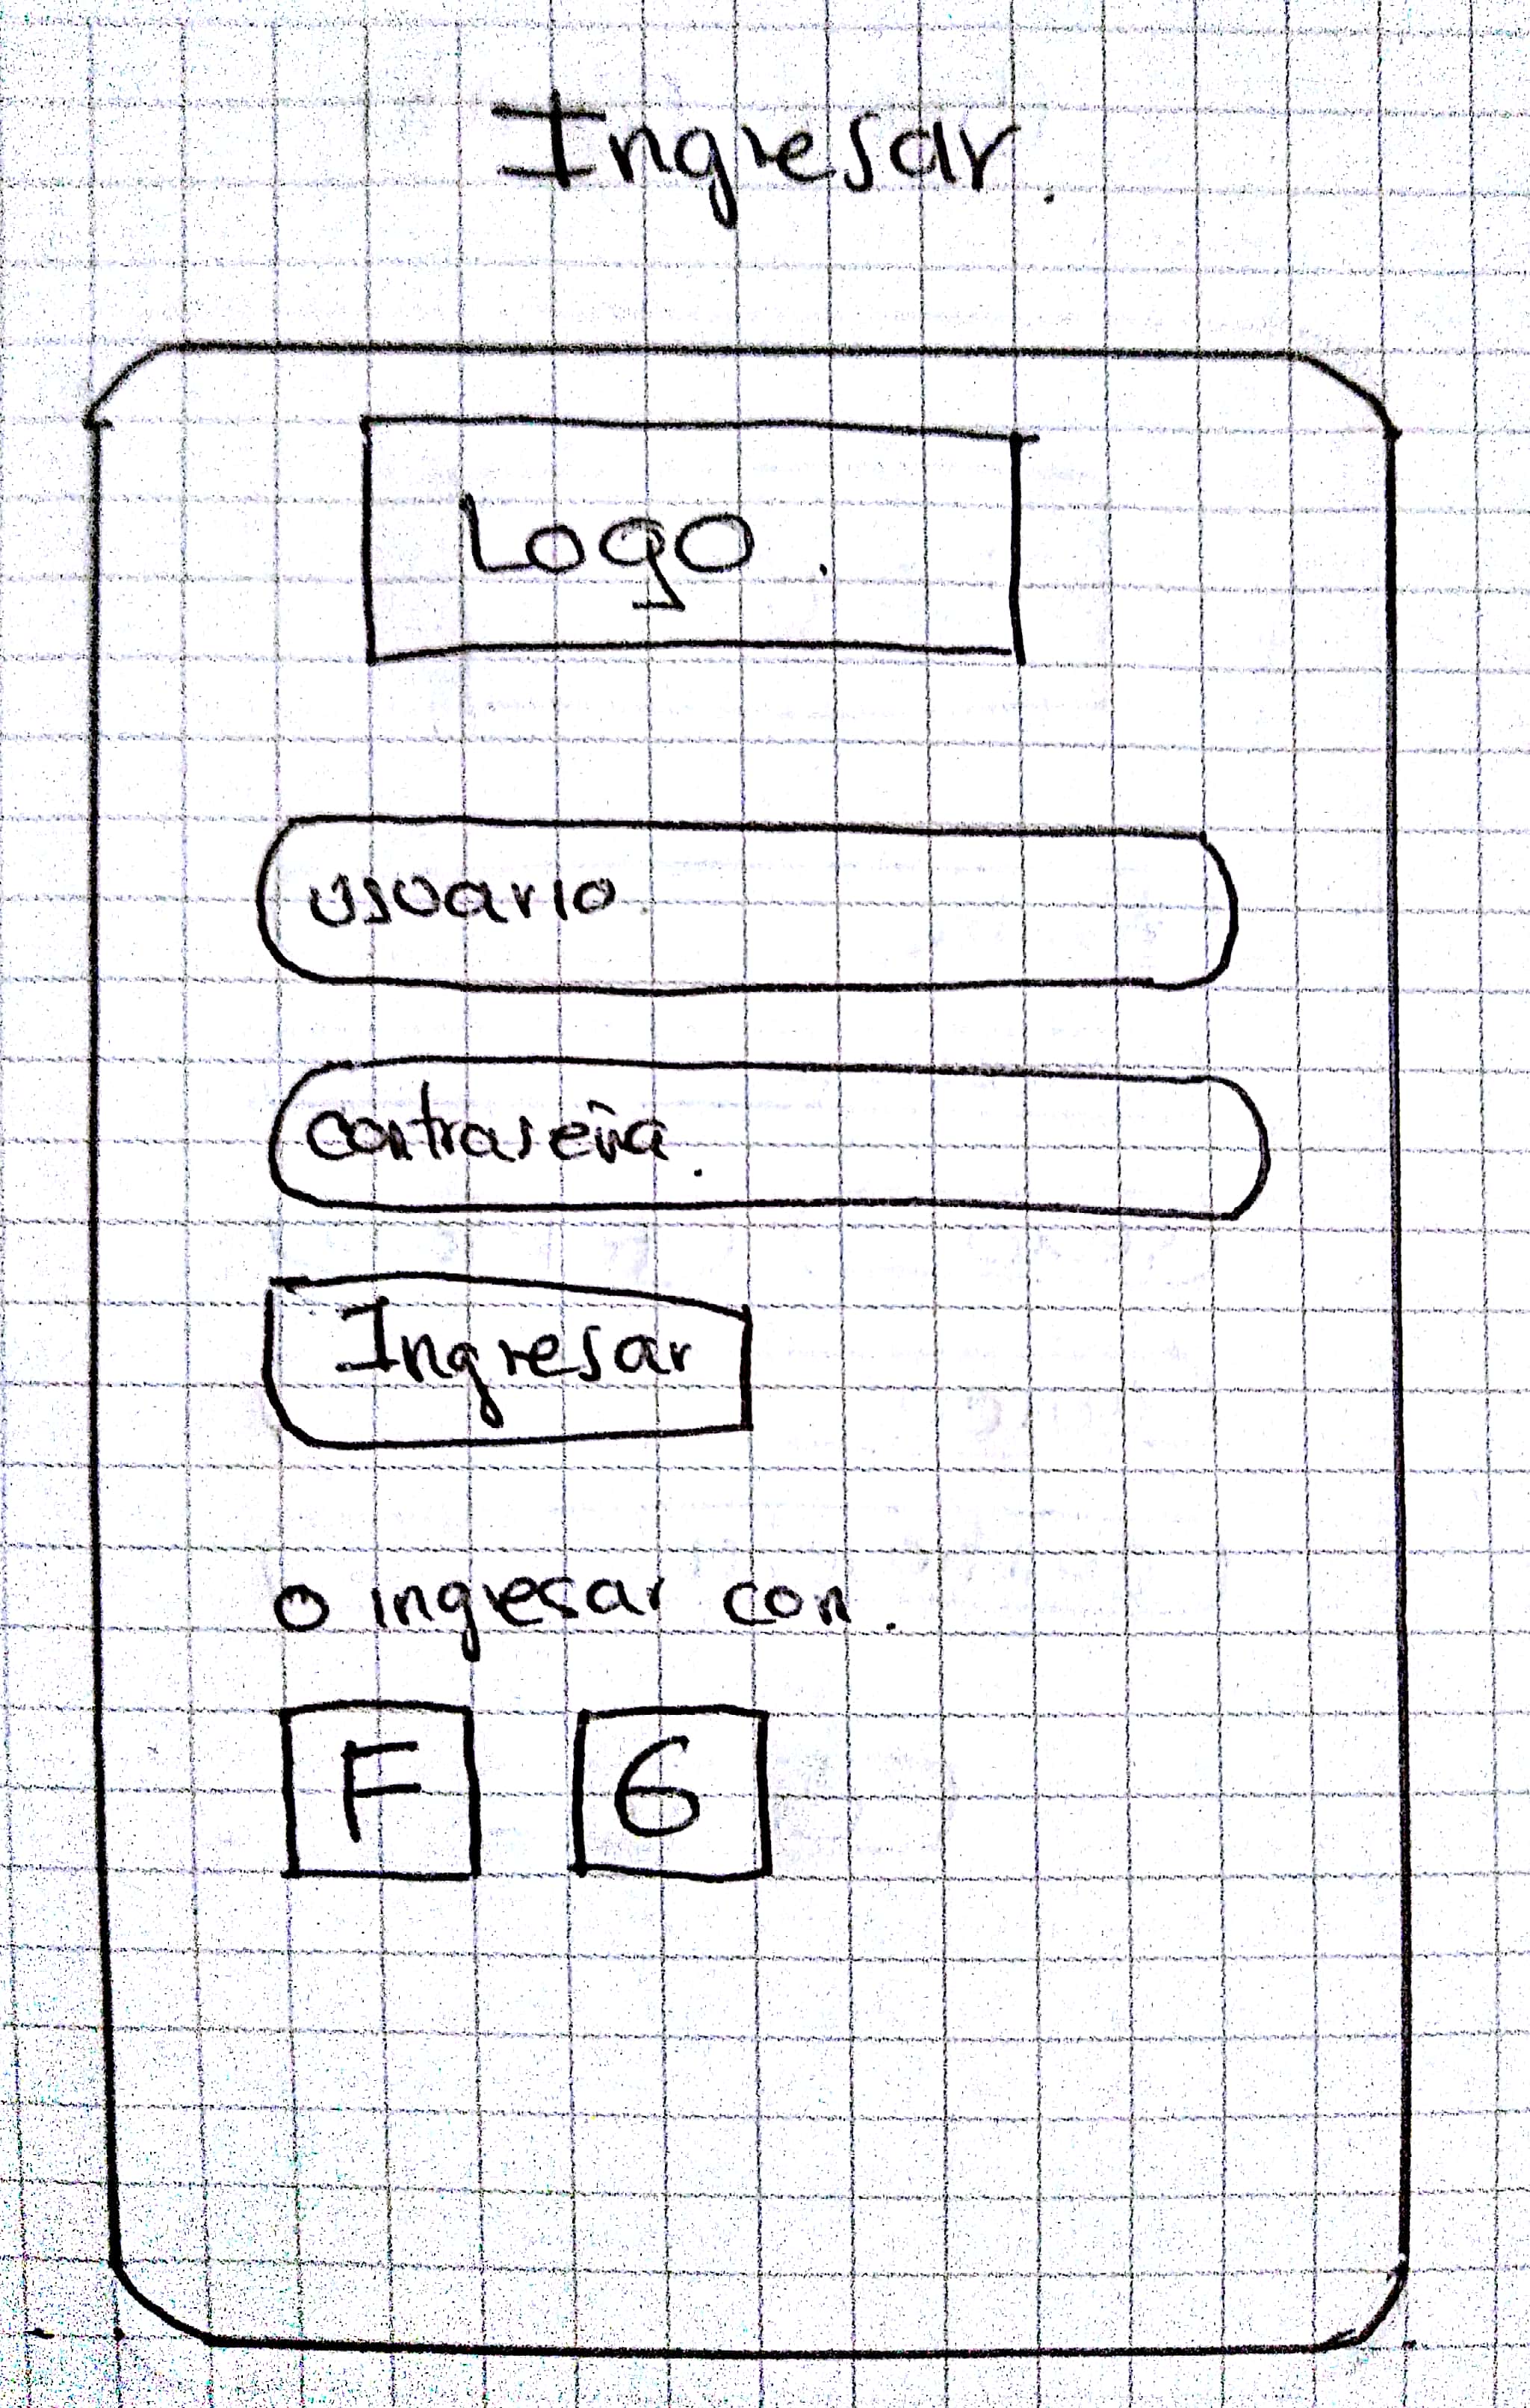 Ingresar.
Logo.
usuario.
contraseña.
Ingresar
O ingresar con.
F G